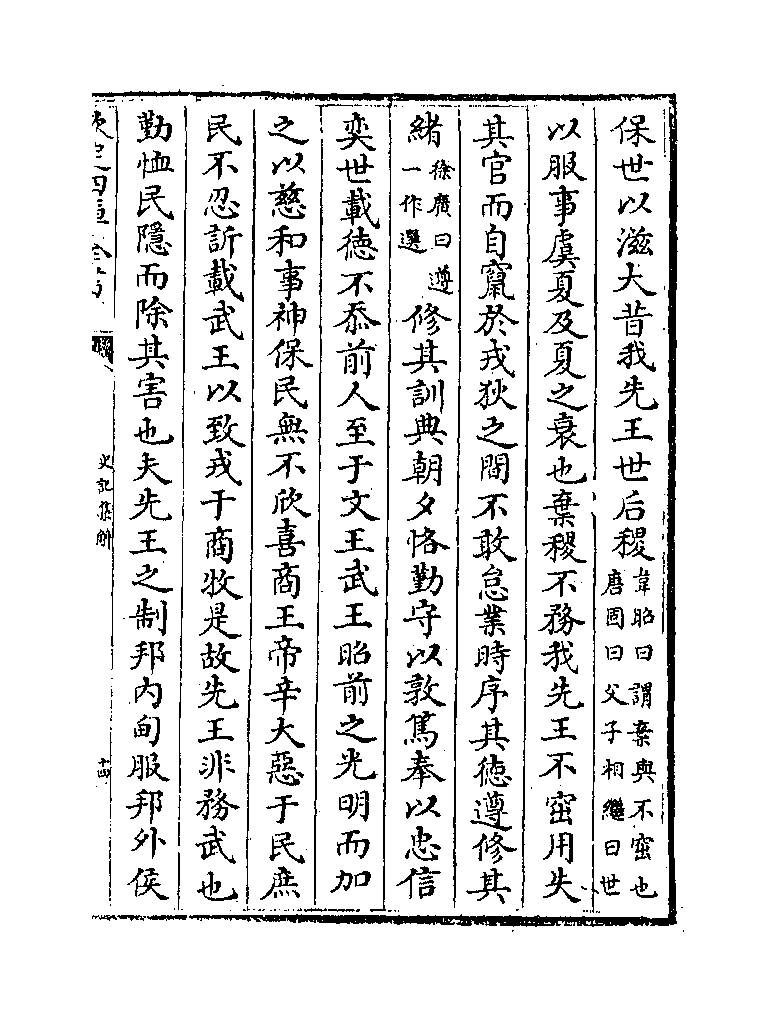 保世以滋大昔我先王世后稷韋昭曰謂棄與不窋也唐固曰父子相繼曰世
以服事虞夏及夏之衰也棄稷不務我先王不窋用失
其官而自竄於戎狄之間不敢怠業時序其徳遵修其
緒徐廣曰遵一作選修其訓典朝夕恪勤守以敦篤奉以忠信
奕世載徳不忝前人至于文王武王昭前之光明而加
之以慈和事神保民無不欣喜商王帝辛大惡于民庶
民不忍訢載武王以致戎于商牧是故先王非務武也
勤恤民隱而除其害也夫先王之制邦内甸服邦外侯
欽定四庫全書
史記集解
十四